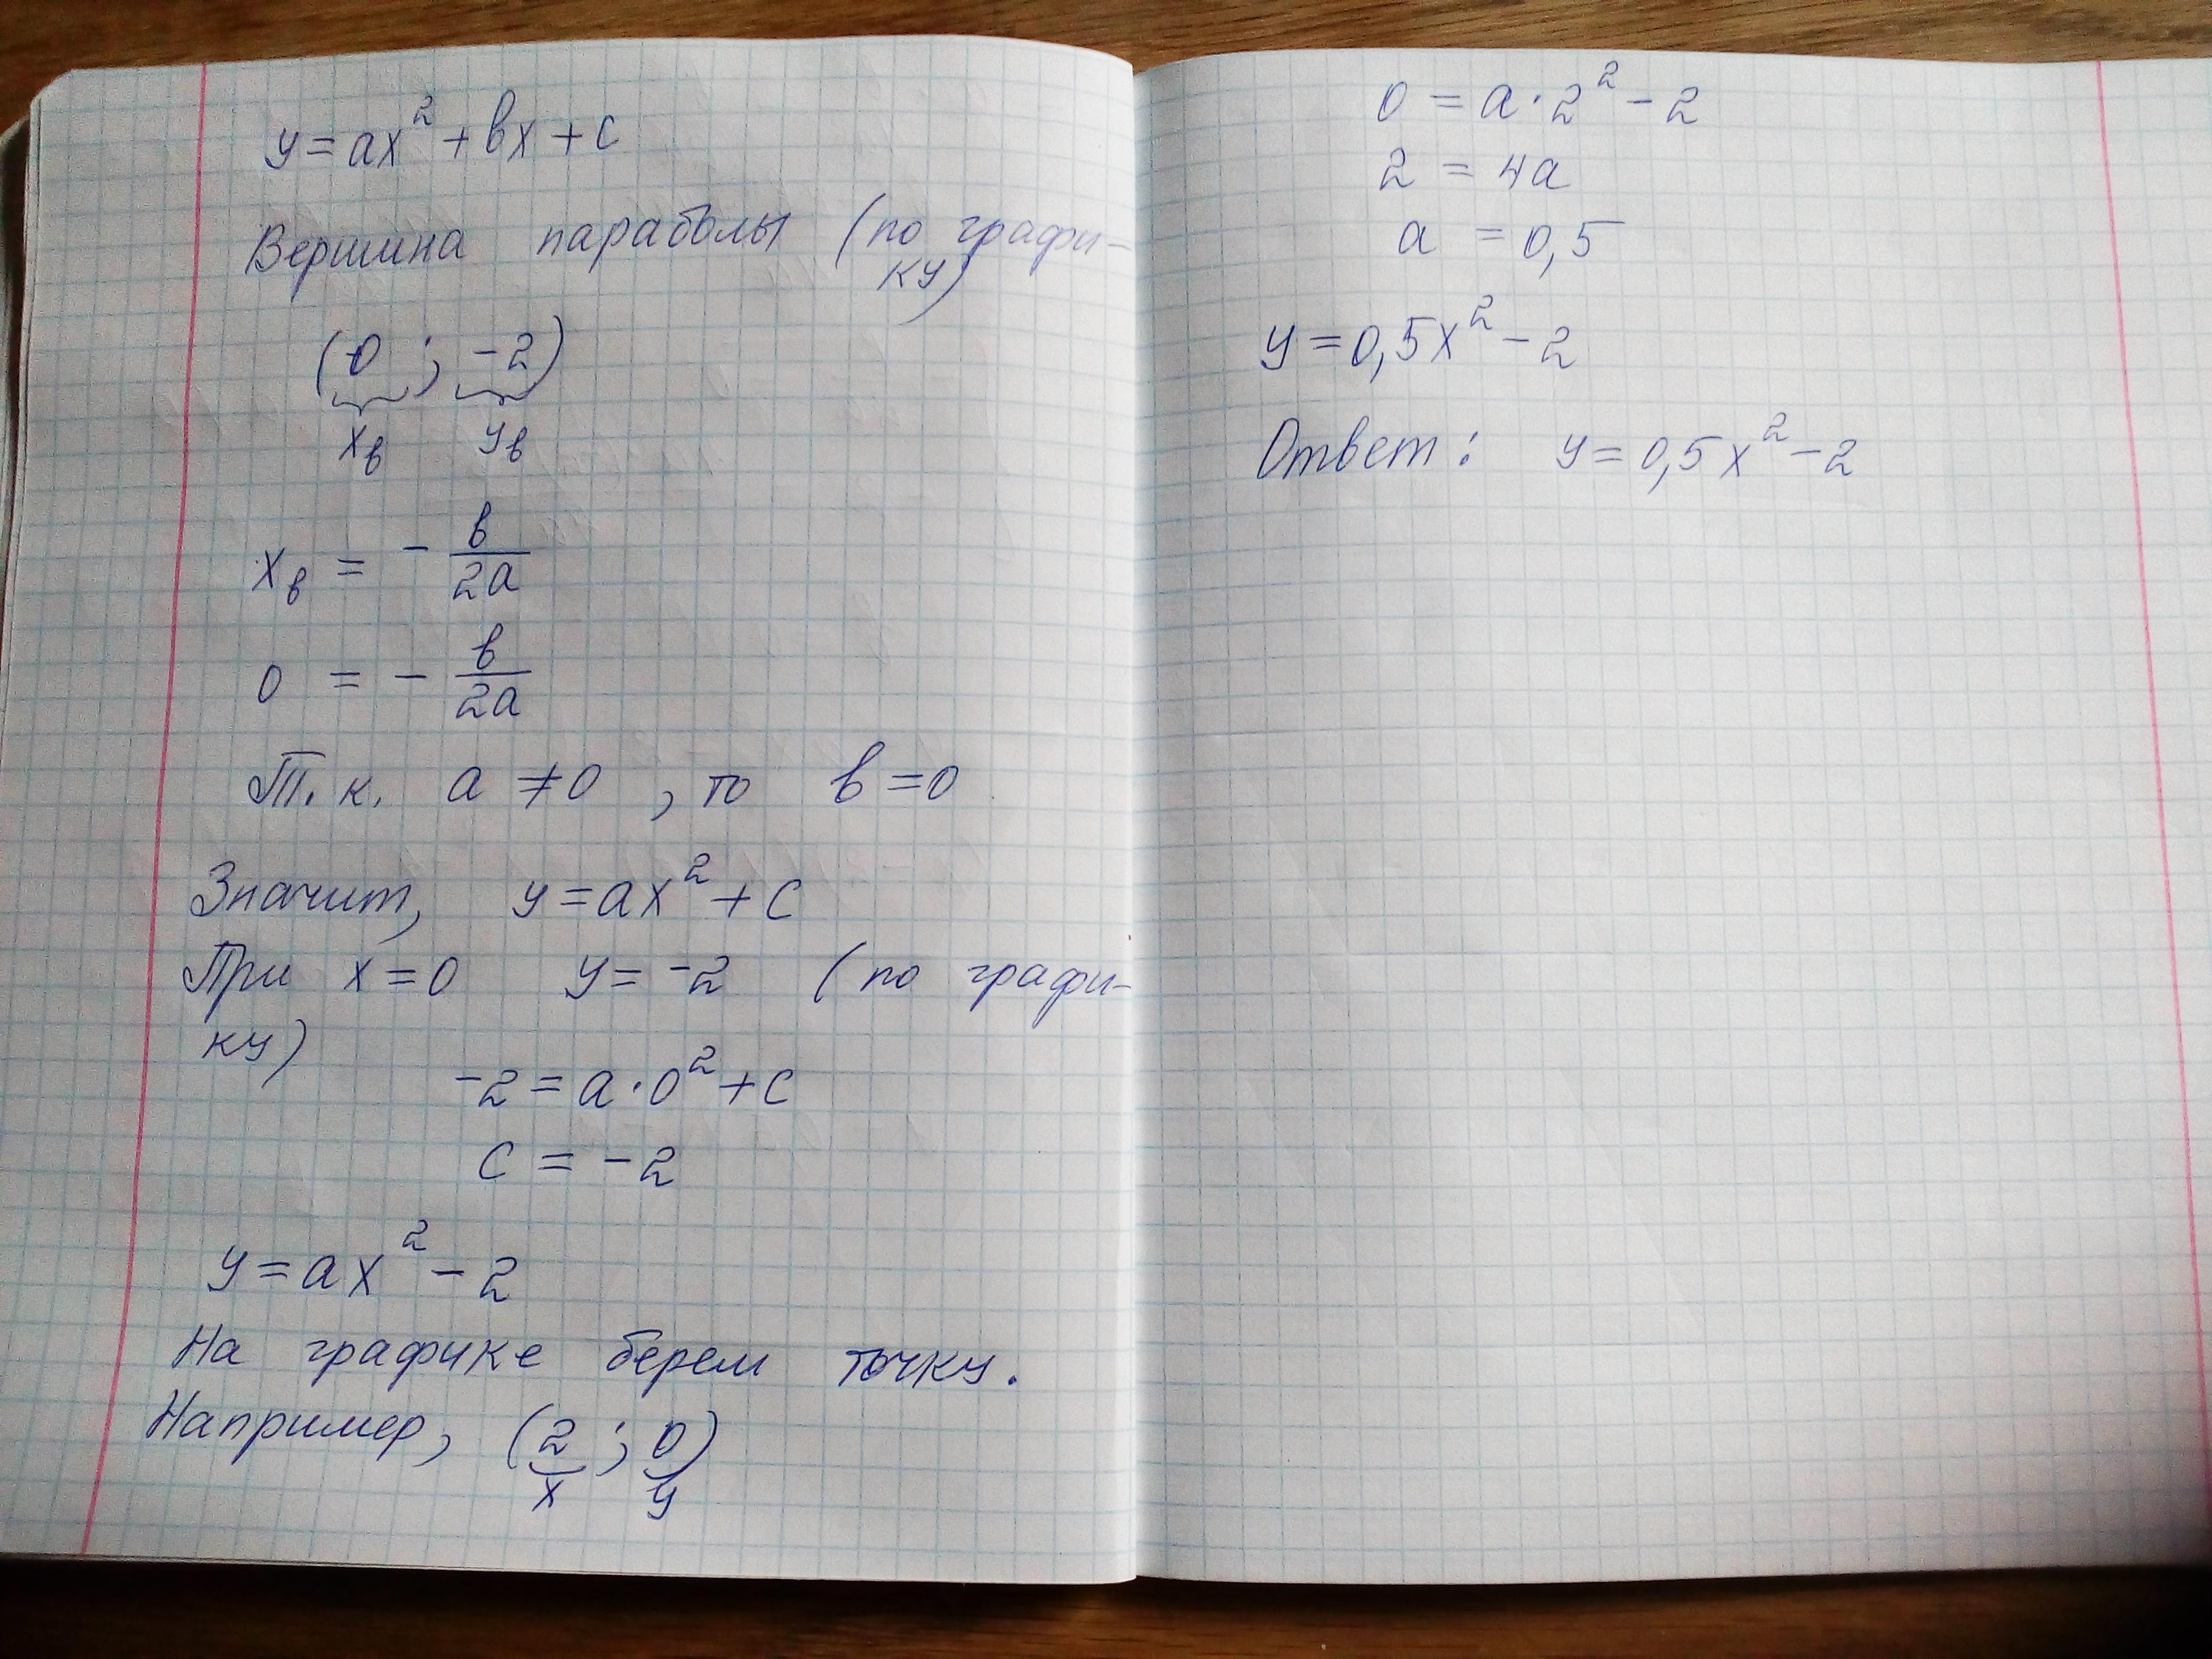 y = ax² + bx + c
Вершина параболы (по графи-
ку)
(0 ; -2)
xв yв
xв = - b/2a
0 = - b/2a
Т.к. a ≠ 0, то b = 0
Значит, y = ax² + c
При x = 0 y = -2 (по графи-
ку)
-2 = a · 0² + c
c = -2
y = ax² - 2
На графике берем точку.
Например, (2 ; 0)
x y
0 = a · 2² - 2
2 = 4a
a = 0,5
y = 0,5x² - 2
Ответ: y = 0,5x² - 2